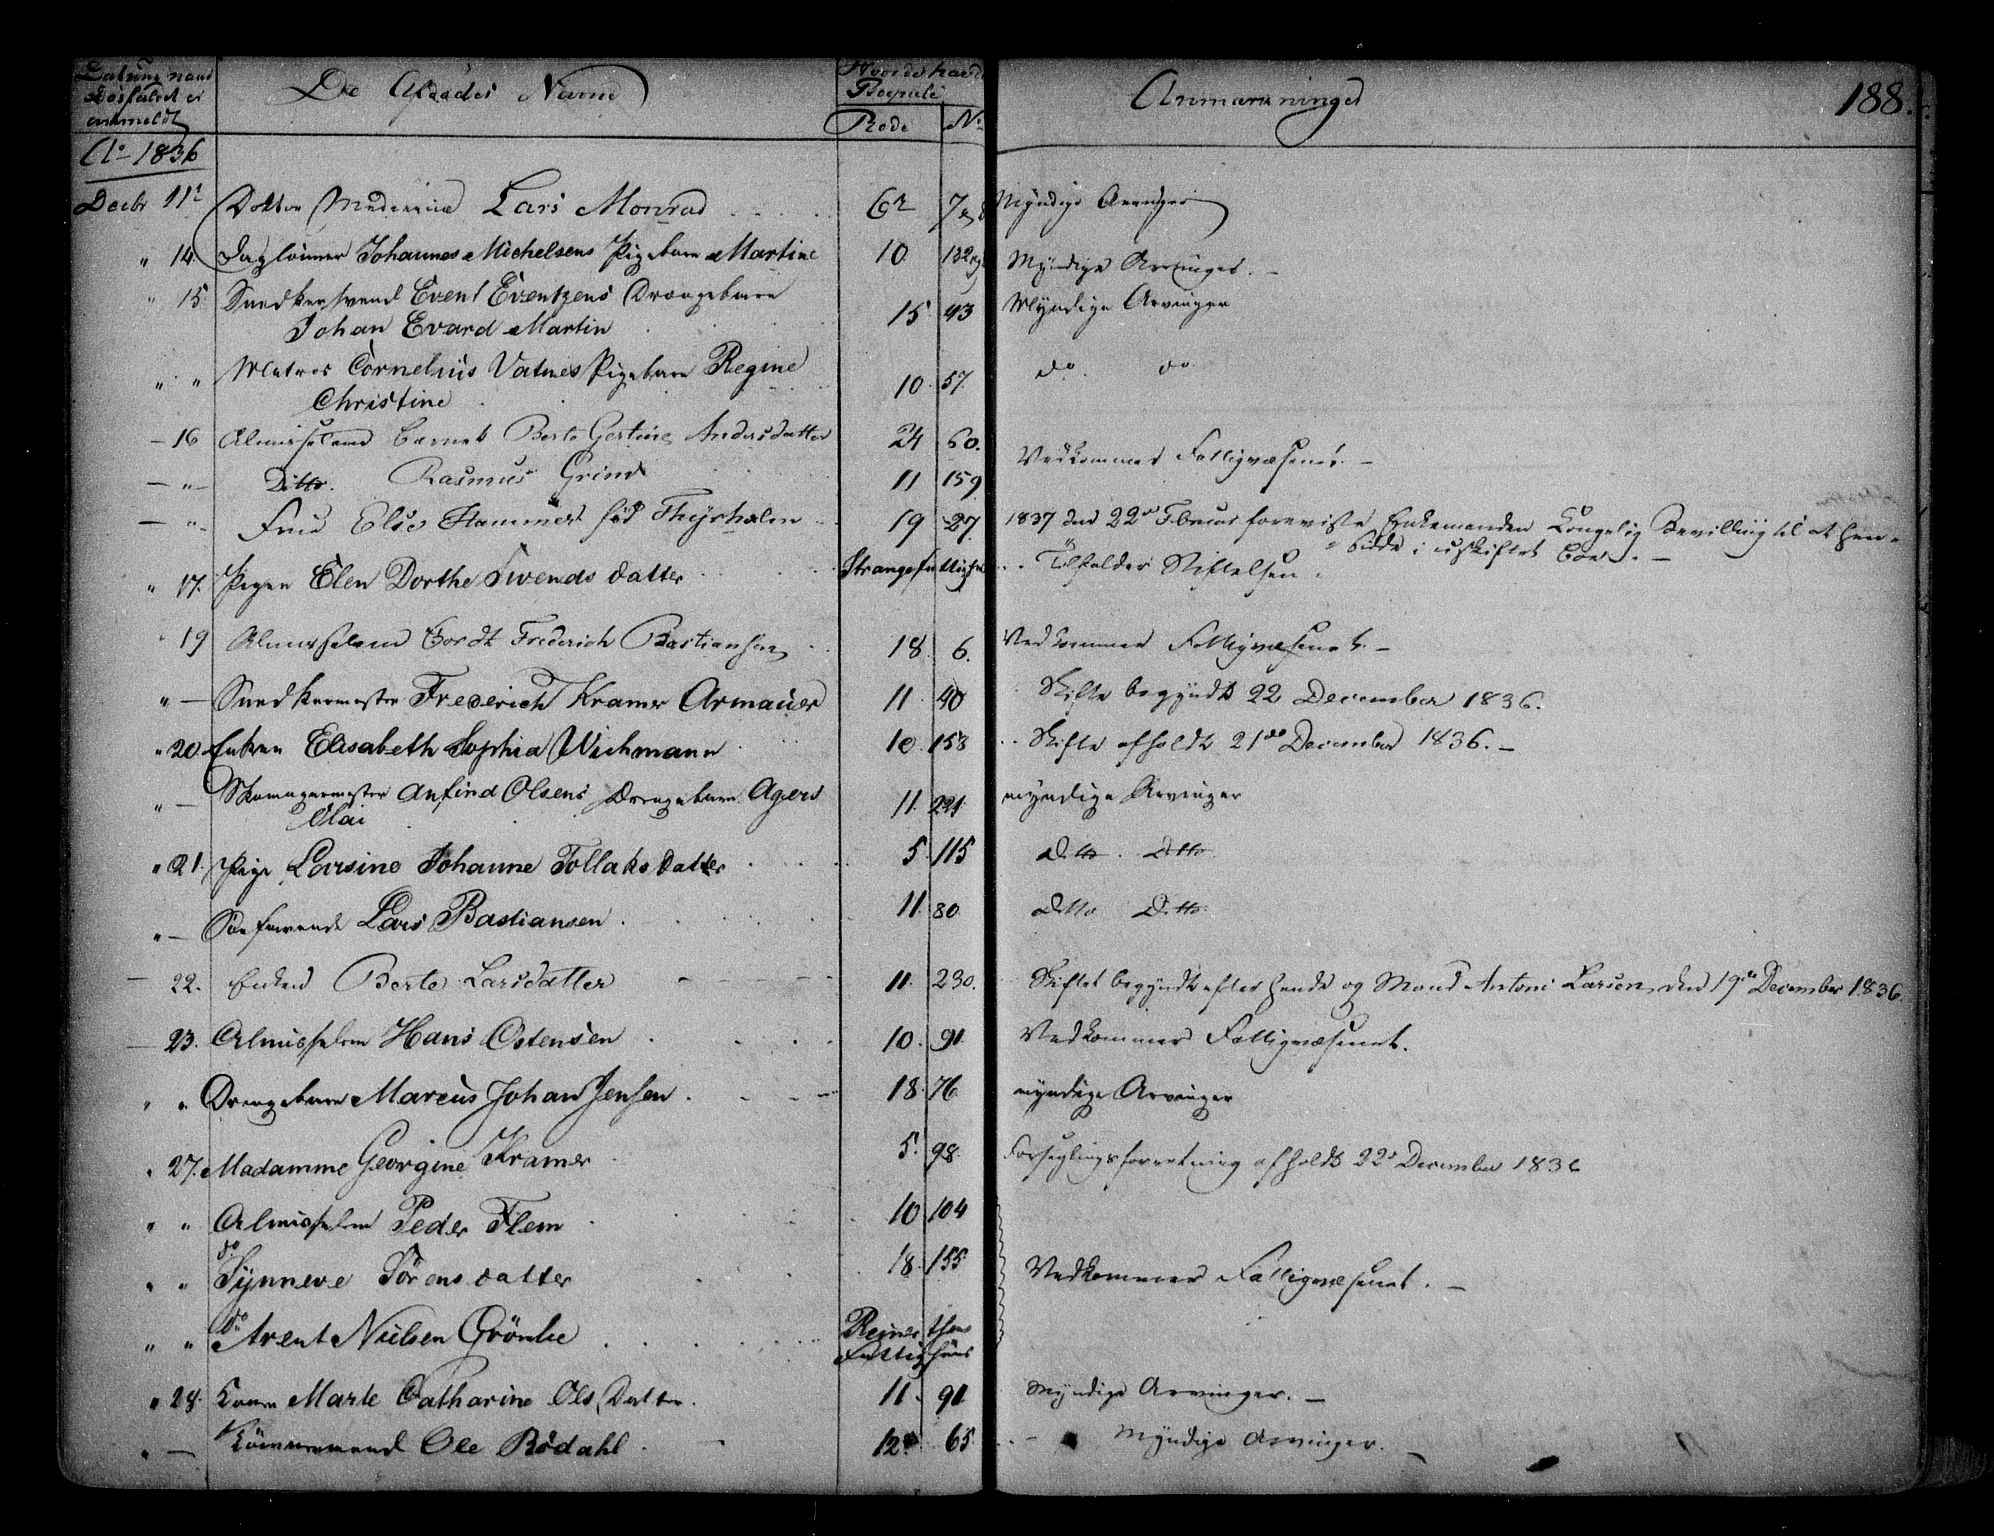 Datum naar Dösfaldet er anmeldt
De Afdødes Navne
Hvor de havde Boepæle
Rode No
Anmærkninger
188.
Ao 1836
Decbr 11te Doktor Medicinæ Lars Monrad 6te 7 Myndige Arvinger
" 14 Dagleiner Johannes Michelsens Pigebarn Martine 10 132 Myndige Arvinger.
" 15 Snedkersvend Event Eventzens Drængebarn
Johan Evard Martin 15 43 Myndige Arvinger
" " Matros Cornelius Vatnes Pigebarn Regine
Christine 10 57 do do
- 16 Almisselem barnet Berte Gertine Andersdatter 24 60.
- " Ditto. Rasmus Grind 11 159 Vedkommer Fattigvæsenet. -
- " Frue Else Hammer fød Thyrholm 19 27. 1837 den 22de Februar foreviste Enkemanden Kongelig Bevilling til at hen-
sidde i uskiftet Boe. -
" 17. Pigen Elen Dorthe Svends datter Strangefattighus Tilfalder Stiftelsen.
" 19 Almisselem Cordt Frederich Bastiansen 18 6. Vedkommer Fattigvæsenet. -
" - Snedkermester Frederich Kramer Armauer 11 40 Skifte begyndt 22 December 1836.
" 20. Enken Elisabeth Sophia Wichmann 10 158 Skifte afholdt 21de December 1836. -
" - Skomagermester Anfind Olsens Drengebarn Agers
Olai 11 221 myndige Arvinger
" 21. Pige Larsine Johanne Tollaks datter 5 115 Ditto. Ditto.
" - Søefarende Lars Bastiansen 11 80 Ditto Ditto.
- 22. Enken Berte Larsdatter 11. 230. Skiftet begyndt efter hende og Mand Antoni Larsen, den 19de December 1836.
- 23. Almisselem Hans Ostensen 10. 91 Vedkommer Fattigvæsenet.
" " Drengebarn Marcus Johan Jensen 18. 76 myndige Arvinger
" 27. Madamme Georgine Kramer 5. 98. Forseglingsforretning afholdt 22de December 1836
" " Almisselem Peder Flem 10 104
" " do Synneve Sørens datter 18. 155 Vedkommer Fattigvæsenet. -
" " do Arent Nielsen Grönlie Reinertsens Fattighuus
" 28. Konen Marte Catharine Ols Datter. 11. 91 Myndige Arvinger. -
" - Tömmermand Ole Rödahl 12 65 Myndige Arvinger. -